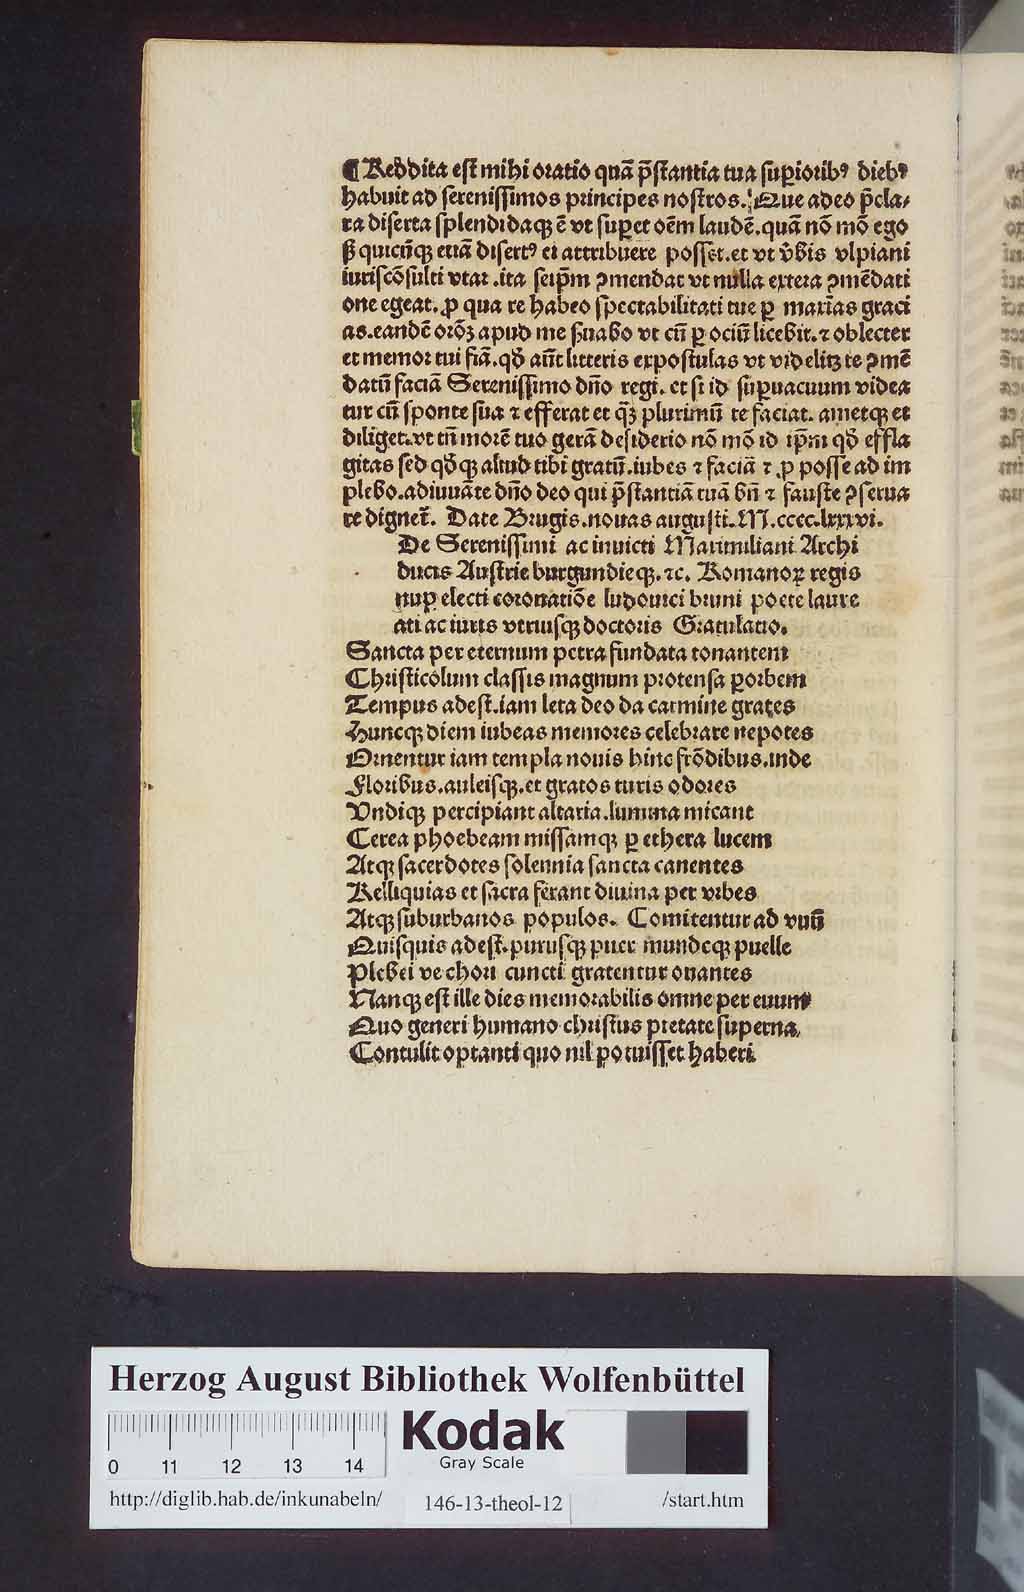 ¶ Reddita est mihi oratio quā p̄stantia tua sup̱iorib⁹ dieb⁹
habuit ad serenissimos principes nostros. Que adeo p̄cla-
ra diserta splendidaqꝫ ē vt sup̱et oēm laudē. quā nō mō ego
sꝫ quicūqꝫ etiā disert⁹ ei attribuere posset. et vt v̄bis vlpiani
iuriscōsulti vtar. ita seip̄m ꝯmendat vt nulla extera ꝯmēdati
one egeat. ꝓ qua re habeo spectabilitati tue ꝑ maxīas graci
as. eandē orōꝫ apud me ẜuabo vt cū ꝑ ociū licebit. ⁊ oblecter
et memor tui fiā. qd̄ aūt litteris expostulas vt videlitꝫ te ꝯmē
datū faciā Serenissimo dn̄o regi. et si id suꝑuacuum videa
tur cū sponte sua ⁊ efferat et qꝫ̄ plurimū te faciat. ametqꝫ et
diliget. vt tn̄ morē tuo gerā desiderio nō mō id ip̄m qd̄ effla
gitas sed qd̄qꝫ aliud tibi gratū. iubes ⁊ faciā ⁊ ꝓ posse ad im
plebo. adiuuāte dn̄o deo qui p̄stantiā tuā bn̄ ⁊ fauste ꝯserua
re dignet̄. Date Brugis. nouas augusti. M.cccc.lxxxvi.
De Serenissimi ac inuicti Maximiliani Archi
ducis Austrie burgundieqꝫ. ⁊c. Romanoꝝ regis
nuꝑ electi coronatiōe ludouici bruni poete laure
ati ac iuris vtriusqꝫ doctoris Gratulatio.
Sancta per eternum petra fundata tonantem
Christicolum classis magnum protensa ꝑ orbem
Tempus adest. iam leta deo da carmine grates
Huncqꝫ diem iubeas memores celebrare nepotes
Ornentur iam templa nouis hinc frōdibus. inde
Floribus. auleisqꝫ. et gratos turis odores
Vndiqꝫ percipiant altaria. lumina micant
Cerea phoebeam missamqꝫ ꝑ ethera lucem
Atqꝫ sacerdotes solennia sancta canentes
Relliquias et sacra ferant diuina per vrbes
Atqꝫ suburbanos populos. Comitentur ad vnū
Quisquis adest. purusqꝫ puer mundeqꝫ puelle
Plebei ve chori cuncti gratentur ouantes
Nanqꝫ est ille dies memorabilis omne per euum
Quo generi humano christus pietate superna
Contulit optanti quo nil potuisset haberi
Herzog August Bibliothek Wolfenbüttel
Kodak
Gray Scale
0 11 12 13 14
http://diglib.hab.de/inkunabeln/ 146-13-theol-12 /start.htm